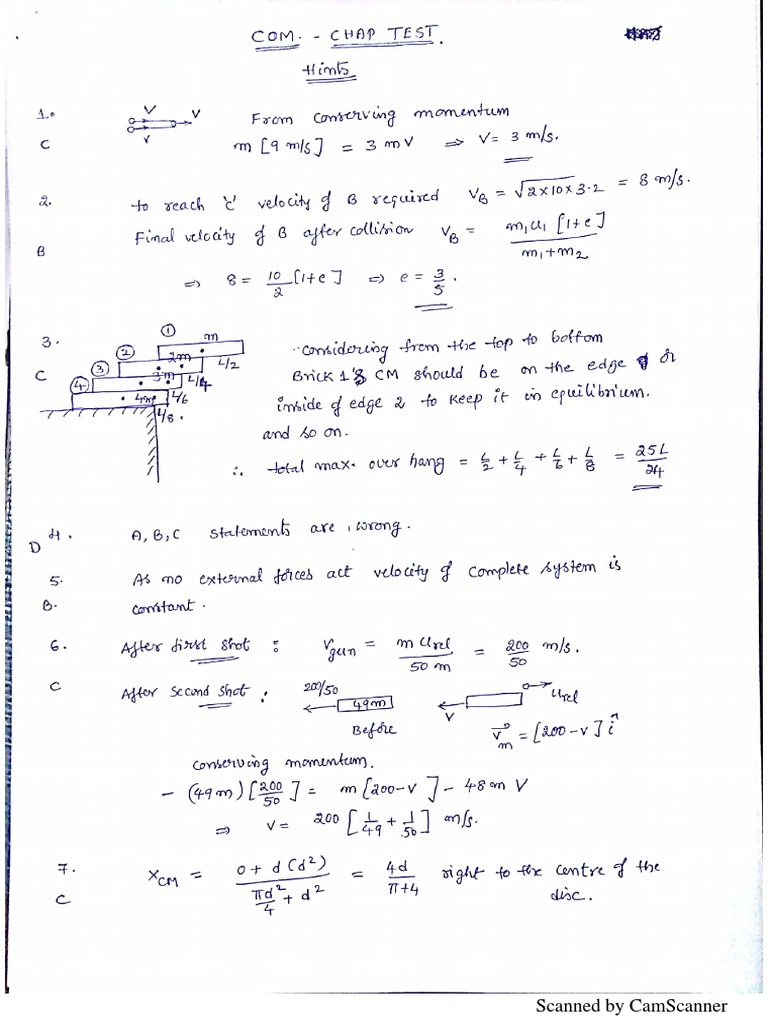 COM. - CHAP TEST.
Hints
1.
V
V
V
From conserving momentum
C
m [9 m/s] = 3 mV ⇒ V = 3 m/s.
2.
to reach 'c' velocity of B required V_B = √2×10×3.2 = 8 m/s.
B
Final velocity of B after collision V_B = m₁u₁ [1+e] / m₁+m₂
⇒ 8 = 10/2 [1+e] ⇒ e = 3/5.
3.
C
① m
② 2m L/2
③ 3m L/4
④ 4m L/6
L/8.
Considering from the top to bottom
Brick 1's CM should be on the edge or
inside of edge 2 to keep it in equilibrium.
and so on.
∴ total max. over hang = L/2 + L/4 + L/6 + L/8 = 25L/24
4.
D
A, B, C statements are wrong.
5.
As no external forces act velocity of complete system is
B.
constant.
6.
After first shot : V_gun = m u_rel / 50 m = 200/50 m/s.
C
After second shot : 200/50
49m
Before
V
u_rel
V⃗_m = [200-v] î
conserving momentum.
- (49m) [200/50] = m [200-v] - 48 m V
⇒ V = 200 [1/49 + 1/50] m/s.
7.
C
X_CM = 0 + d(d²) / πd²/4 + d² = 4d / π+4 right to the centre of the
disc.
Scanned by CamScanner